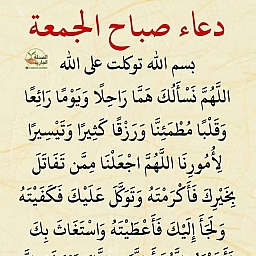 دعاء صباح الجمعة
بسم الله توكلت على الله
اللَّهُمَّ نَسْأَلُكَ هَمًّا رَاحِلًا وَيَوْمًا رَائِعًا
وَقَلْبًا مُطْمَئِنًّا وَرَزْقًا كَثِيرًا وَتَيْسِيرًا
لِأُمُورِنَا اللَّهُمَّ اجْعَلْنَا مِمَّن تَفَاتَلَ
بِخَيْرِكَ فَأَكْرَمْتَهُ وَتَوَكَّلَ عَلَيْكَ فَكَفَيْتَهُ
وَلَجَأَ إِلَيْكَ فَأَعْطَيْتَهُ وَاسْتَغَاثَ بِكَ